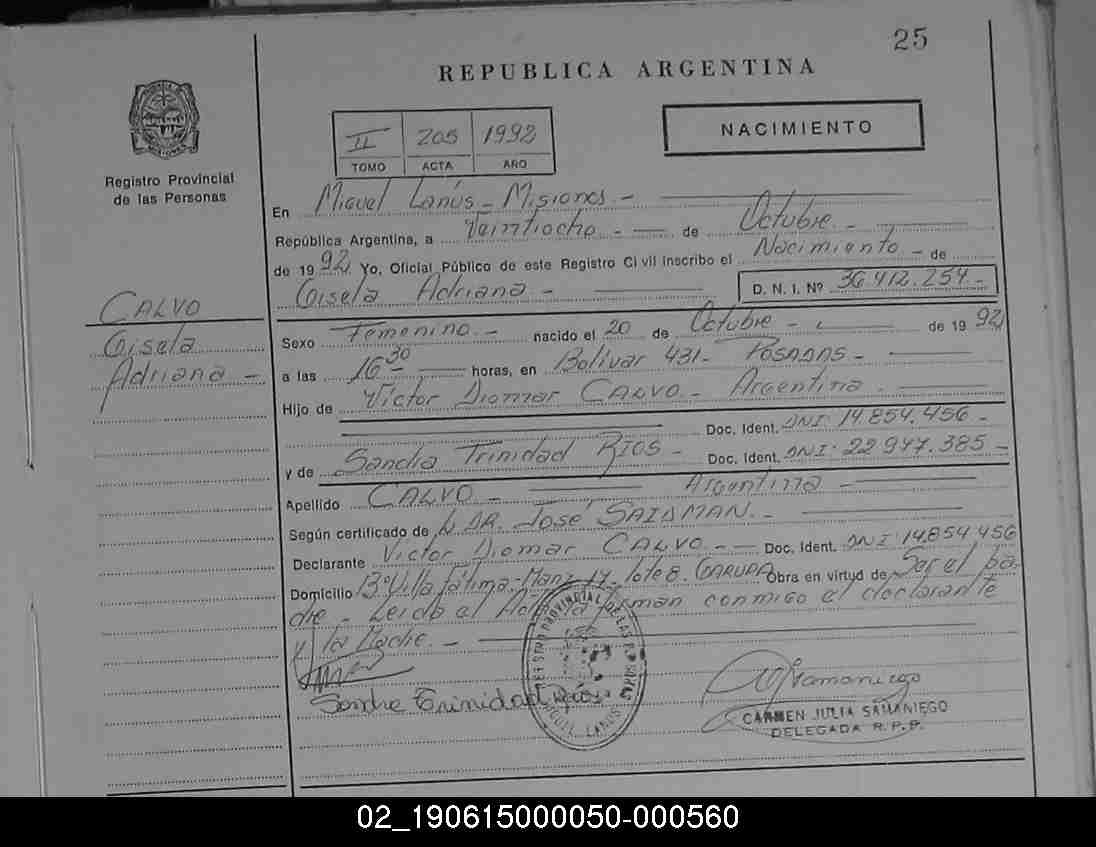 25
REPUBLICA ARGENTINA
Registro Provincial
de las Personas
II 205 1992
TOMO ACTA AÑO
NACIMIENTO
En Miguel Lanús - Misiones -
República Argentina, a Veintiocho - de Octubre -
de 1992, Yo, Oficial Público de este Registro Civil inscribo el Nacimiento - de
Gisela Adriana - D. N. I. Nº 36.412.254. -
CALVO
Gisela
Adriana -
Sexo Femenino. - nacido el 20 de Octubre - de 1992,
a las 16 30 horas, en Bolívar 431 - POSADAS -
Hijo de Victor Diomar CALVO - Argentina
Doc. Ident. DNI: 14.854.456 -
y de Sandra Trinidad RIOS - Doc. Ident. DNI: 22.947.385 -
Argentina -
Apellido CALVO -
Según certificado de DR. José SAIDMAN. -
Declarante Victor Diomar CALVO. - Doc. Ident. DNI: 14.854.456
Domicilio Bº Villa Fátima - Manz. 17 - lote 8. GARUPA Obra en virtud de Ser el pa-
dre - Leida el Acta firman conmigo el declarante
y la Madre. -
Sandra Trinidad Rios
REGISTRO PROVINCIAL DE LAS PERSONAS
MIGUEL LANUS
CARMEN JULIA SAMANIEGO
DELEGADA R. P. P.
02_190615000050-000560